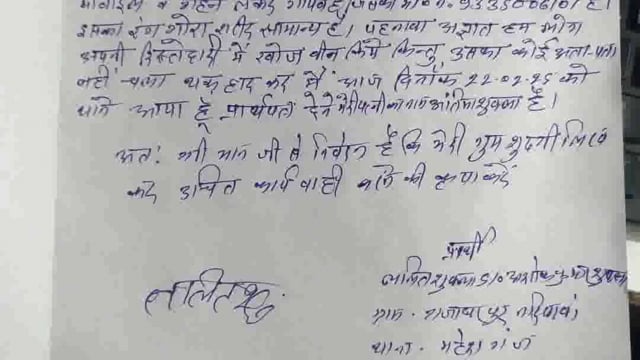 मोबाईल व गहने लेकर गायब है। जिसका मो० नं०
इसका रंग गोरा शरीर सामान्य है। पहनावा अज्ञात हम लोग
अपनी रिश्तेदारी में खोज बीन किये किन्तु उसका कोई अता-पता
नहीं चला थक हार कर मैं आज दिनांक 22-02-25 को
थाने आया हूँ प्रार्थपत्र देने मेरी पत्नी का नाम आंतिमा शुक्ला है।
अतः श्री मान जी से निवेदन है कि मेरी गुम शुदगी लिख
कर उचित कार्यवाही करने की कृपा करें
प्रार्थी
ललित शुक्ला S/o अशोक कुमार शुक्ला
ललित शु.
ग्राम.
थाना. महेश गंज